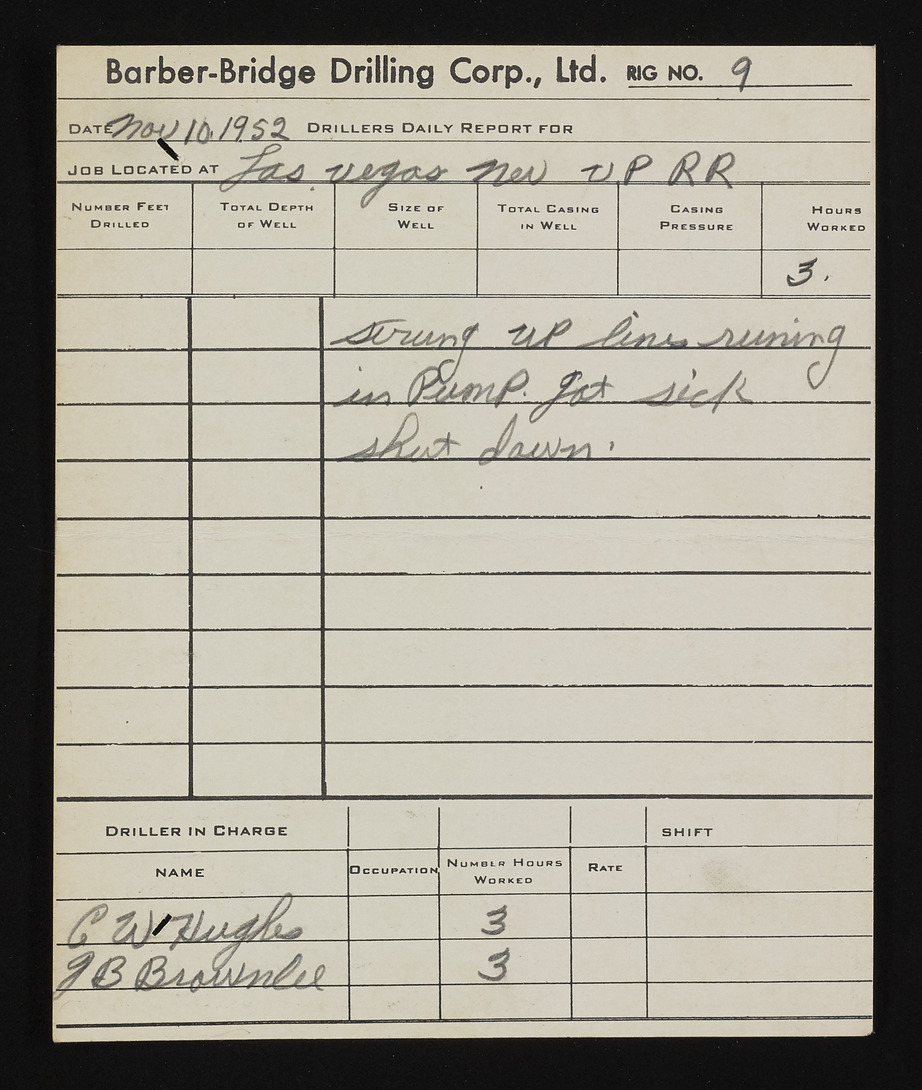 Barber-Bridge Drilling Corp., Ltd. RIG NO. 9
DATE Nov 10, 1952 DRILLERS DAILY REPORT FOR
JOB LOCATED AT Las Vegas Nev UP RR
NUMBER FEET DRILLED TOTAL DEPTH OF WELL SIZE OF WELL TOTAL CASING IN WELL CASING PRESSURE HOURS WORKED
3.
strung up lines runing
in Pump. got sick
shut down.
DRILLER IN CHARGE SHIFT
NAME OCCUPATION NUMBER HOURS WORKED RATE
C W Hughes 3
J B Brownlee 3